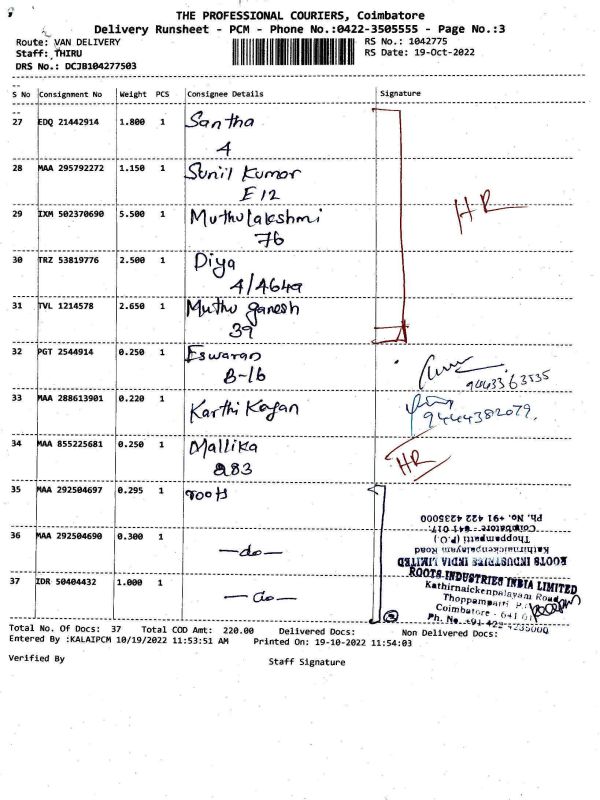 THE PROFESSIONAL COURIERS, Coimbatore
Delivery Runsheet - PCM - Phone No.:0422-3505555 - Page No.:3
Route: VAN DELIVERY RS No.: 1042775
Staff: THIRU RS Date: 19-Oct-2022
DRS No.: DCJB104277503
S No Consignment No Weight PCS Consignee Details Signature
27 EDQ 21442914 1.800 1 Santha
4
28 MAA 295792272 1.150 1 Sunil Kumar
E12
29 IXM 502370690 5.500 1 Muthulakshmi
76
HR
30 TRZ 53819776 2.500 1 Diya
4/464a
31 TVL 1214578 2.650 1 Muthu ganesh
39
32 PGT 2544914 0.250 1 Eswaran
B-16
9443363535
33 MAA 288613901 0.220 1 Karthi Kayan
9444382079.
34 MAA 855225681 0.250 1 Mallika HR
883
35 MAA 292504697 0.295 1 roots
Ph. No. +91 422 4235000
Coimbatore - 641 017.
Thoppampatti (P.O.)
36 MAA 292504690 0.300 1 -do-
Kathirnaickenpalayam Road
ROOTS INDUSTRIES INDIA LIMITED
37 IDR 50404432 1.000 1 -do-
ROOTS INDUSTRIES INDIA LIMITED
Kathirnaickenpalayam Road
Thoppampatti P.
Coimbatore - 641 01
Ph. No. +91-422-4235000
Total No. Of Docs: 37 Total COD Amt: 220.00 Delivered Docs: Non Delivered Docs:
Entered By :KALAIPCM 10/19/2022 11:53:51 AM Printed On: 19-10-2022 11:54:03
Verified By Staff Signature